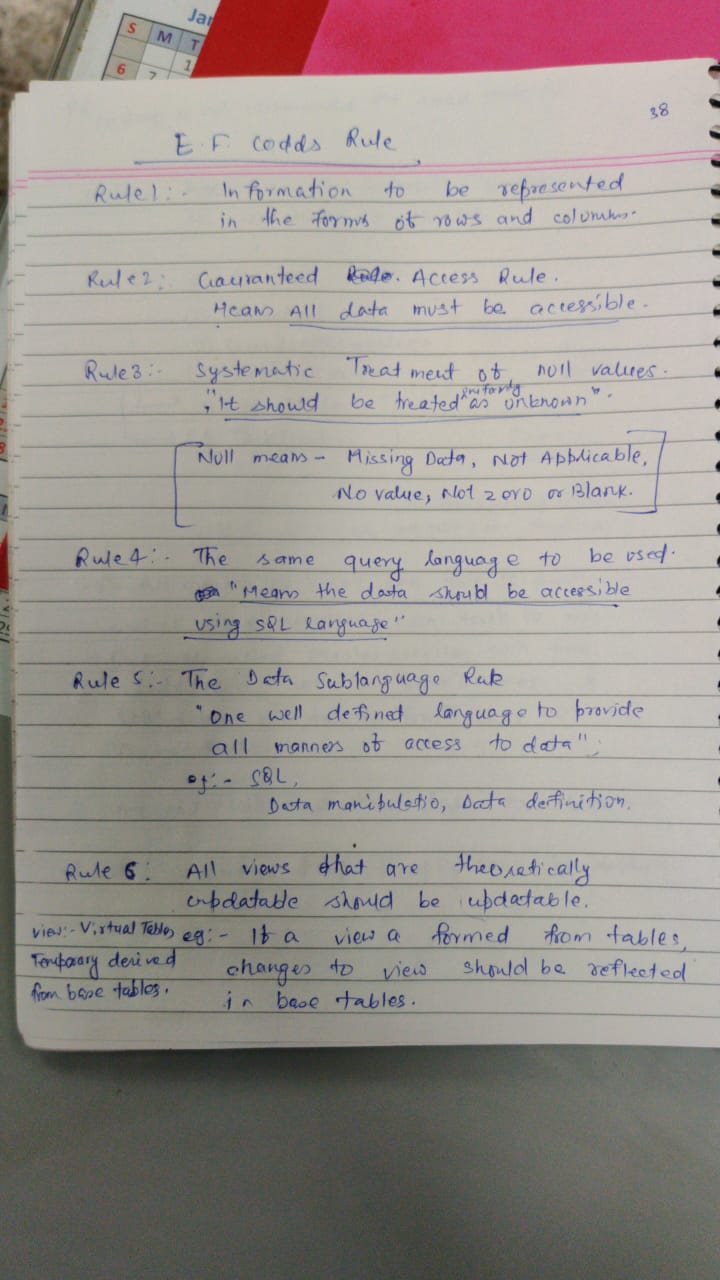 Jan
S M T
1
6 7
38
E. F. Codds Rule
Rule 1:- Information to be represented
in the forms of rows and columns.
Rule 2: Gauranteed Access Rule.
Means All data must be accessible.
Rule 3:- Systematic Treatment of null values.
"It should be treated uniformly as unknown".
Null means - Missing Data, Not Applicable,
No value, Not zero or Blank.
Rule 4:- The same query language to be used.
"Means the data should be accessible
using SQL language"
Rule 5:- The Data Sublanguage Rule
"One well defined language to provide
all manners of access to data"
eg:- SQL,
Data manipulatio, Data definition.
Rule 6: All views that are theoretically
updatable should be updatable.
view:- Virtual Tables eg:- If a view a formed from tables,
Temporary derived changes to view should be reflected
from base tables. in base tables.